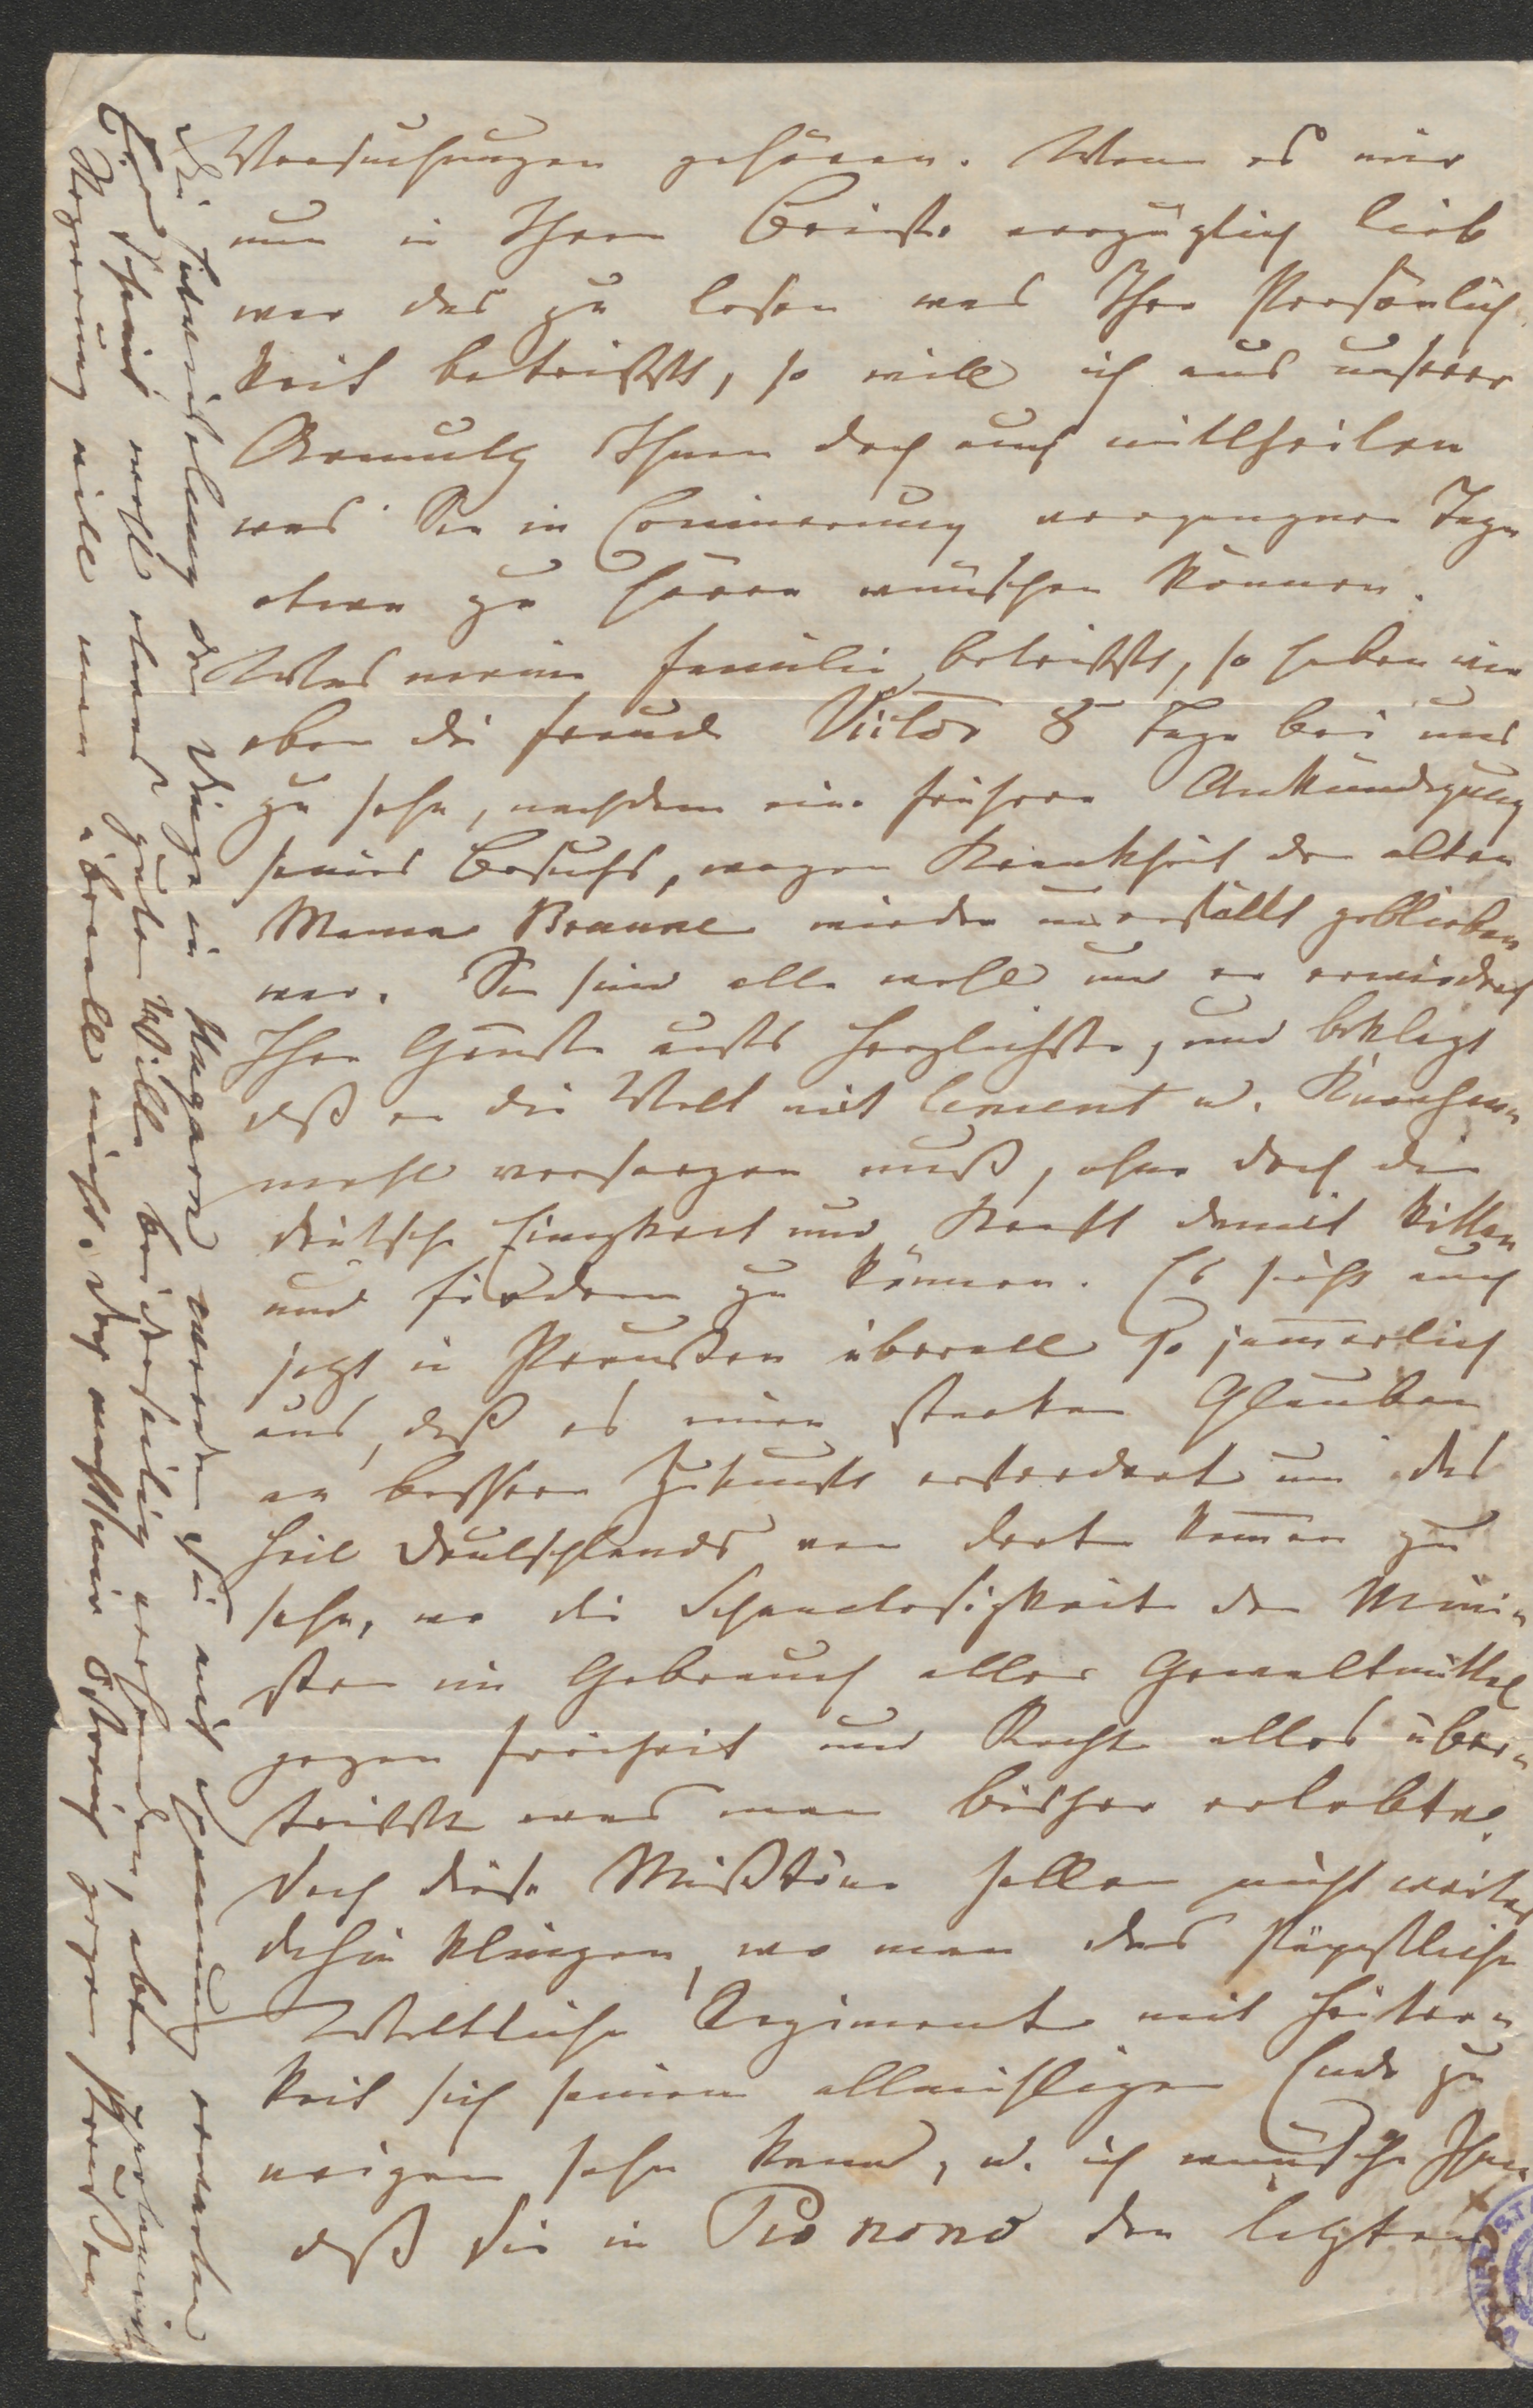 Versuchungen gehören. Wenn es mir
nun in Ihrem Briefe vorzüglich lieb
war das zu lesen was Ihre Persönlich-
keit betrifft, so will ich aus unserer
Armuth Ihnen doch auch mittheilen
was Sie in Erinnerung vergangner Tage
etwa zu hören wünschen können.
Was meine Familie betrifft, so haben wir
eben die Freude Victor 8 Tage bei uns
zu sehn, nachdem eine frühere Ankündigung
seines Besuchs, wegen Krankheit der alten
Mama Braune wieder unerfüllt geblieben
war. Sie sind alle wohl und er erwiedert
Ihre Grüße aufs herzlichste, und beklagt
daß er die Welt mit Cement u. Knochen-
mehl versorgen muß, ohne doch die
deutsche Einigkeit und Kraft damit kitten
und fördern zu können. Es sieht auch
jetzt in Preußen überall so jammerlich
aus, daß es einen starken Glauben
an bessere Zukunft erfordert um das
Heil Deutschlands von dort kommen zu
sehn, wo die Schamlosigkeit der Mini-
ster im Gebrauch aller Gewaltmittel
gegen Freiheit und Recht alles über-
trifft was man bisher erlebte.
Doch diese Mißtöne sollen nicht weiter
dahin klingen, wo man das päpstliche
Weltliche Regiment mit Heiter-
keit sich seinem allmähligen Ende zu
neigen sehn kann, u. ich wünsche Ihnen
daß Sie in Pio nono den letzten
Die Entwickelung der Dinge in Ungarn werden Sie mit Spannung erwarten
Es scheint wohl etwas guter Wille beiderseitig vorhanden, aber
Regierung will man überall nicht. Doch gegen Preußen